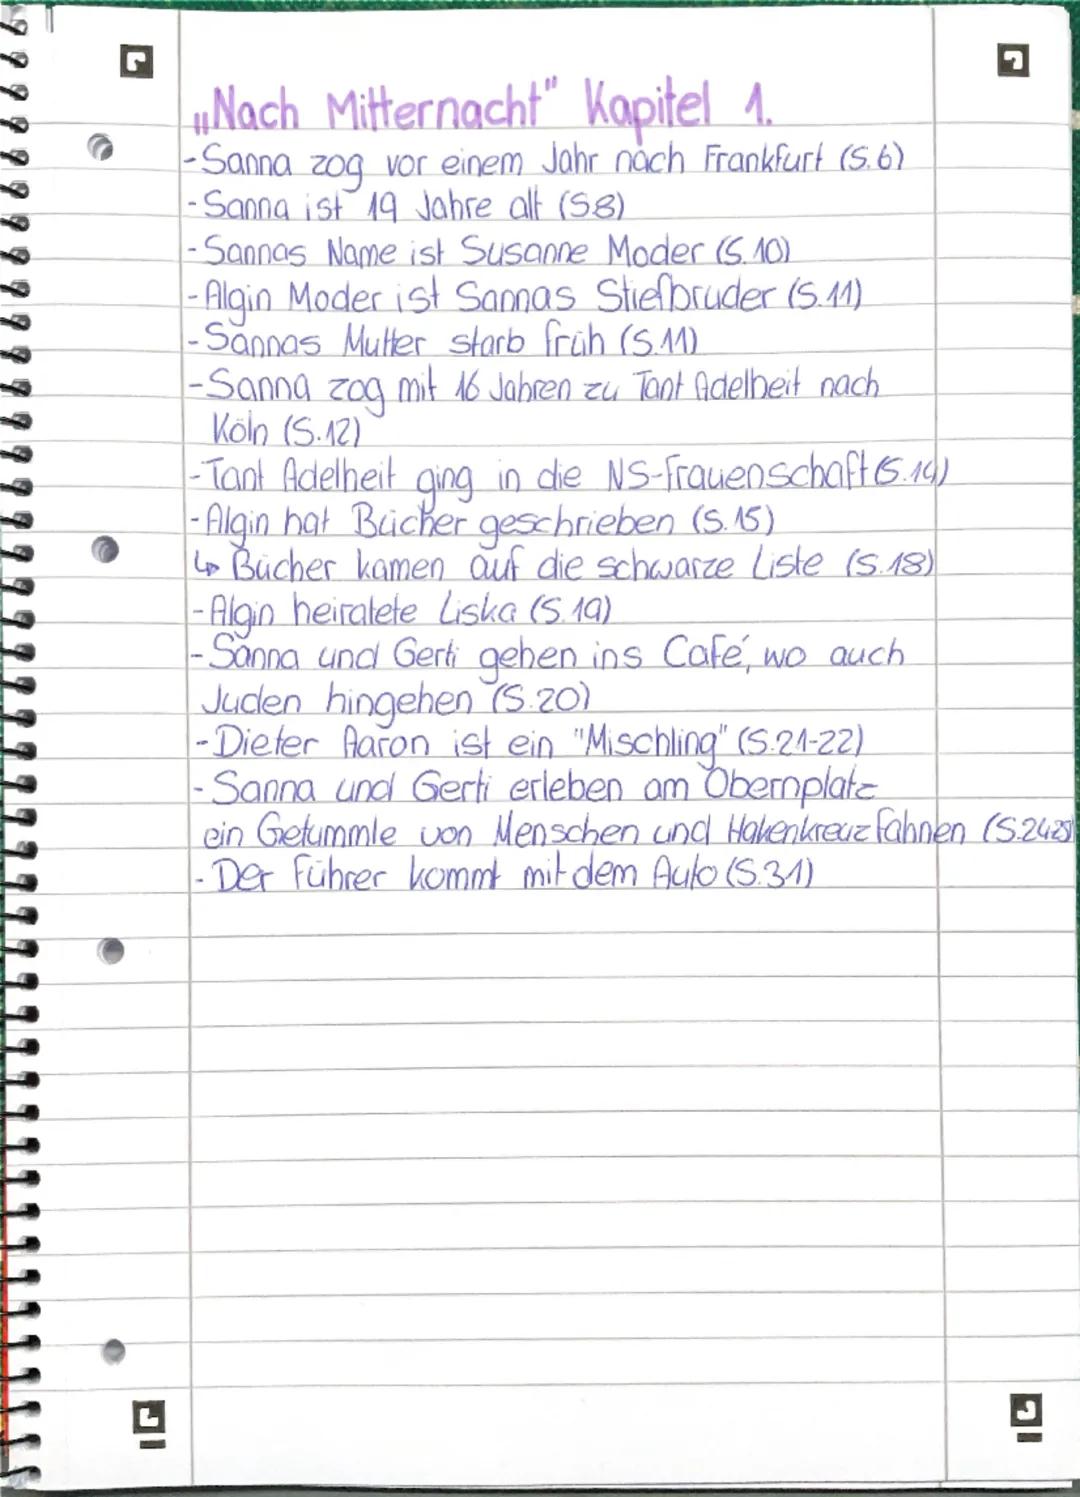 „Nach Mitternacht" Kapitel 1.
- Sanna zog vor einem Jahr nach Frankfurt (S.6)
- Sanna ist 19 Jahre alt (S8)
- Sannas Name ist Susanne Moder (S.10)
- Algin Moder ist Sannas Stiefbruder (S.11)
- Sannas Mutter starb früh (S.11)
- Sanna zog mit 16 Jahren zu Tant Adelheit nach
Köln (S.12)
- Tant Adelheit ging in die NS-Frauenschaft (S.14)
- Algin hat Bücher geschrieben (S.15)
↳ Bücher kamen auf die schwarze Liste (S.18)
- Algin heiratete Liska (S.19)
- Sanna und Gerti gehen ins Café, wo auch
Juden hingehen (S.20)
- Dieter Aaron ist ein "Mischling" (S.21-22)
- Sanna und Gerti erleben am Obernplatz
ein Getummle von Menschen und Hakenkreuzfahnen (S.24-25)
- Der Führer kommt mit dem Auto (S.31)